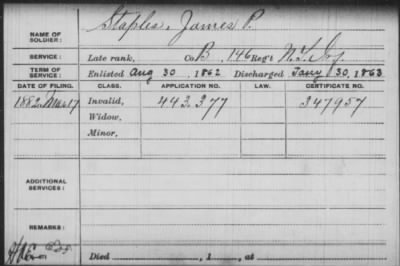 Staples, James P.
NAME OF SOLDIER:
SERVICE: Late rank, Co. B, 146 Reg't N.Y. Inf.
TERM OF SERVICE: Enlisted Aug 30, 1862 Discharged Jany 30, 1863
DATE OF FILING. CLASS. APPLICATION NO. LAW. CERTIFICATE NO.
1882 Mar 17 Invalid, 443.377 347957
Widow,
Minor,
ADDITIONAL SERVICES:
REMARKS:
Died , 1 , at